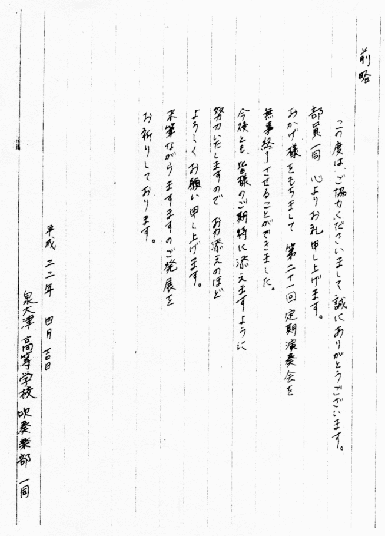 前略
この度は、ご協力くださいまして誠にありがとうございます。
部員一同 心よりお礼申し上げます。
おかげ様をもちまして 第二十一回 定期演奏会を
無事終了させることができました。
今後とも、皆様のご期待に添えますように
努力いたしますので お力添えのほど
よろしくお願い申し上げます。
末筆ながらますますのご発展を
お祈りしております。
平成二二年 四月 吉日
泉大津高等学校 吹奏楽部 一同